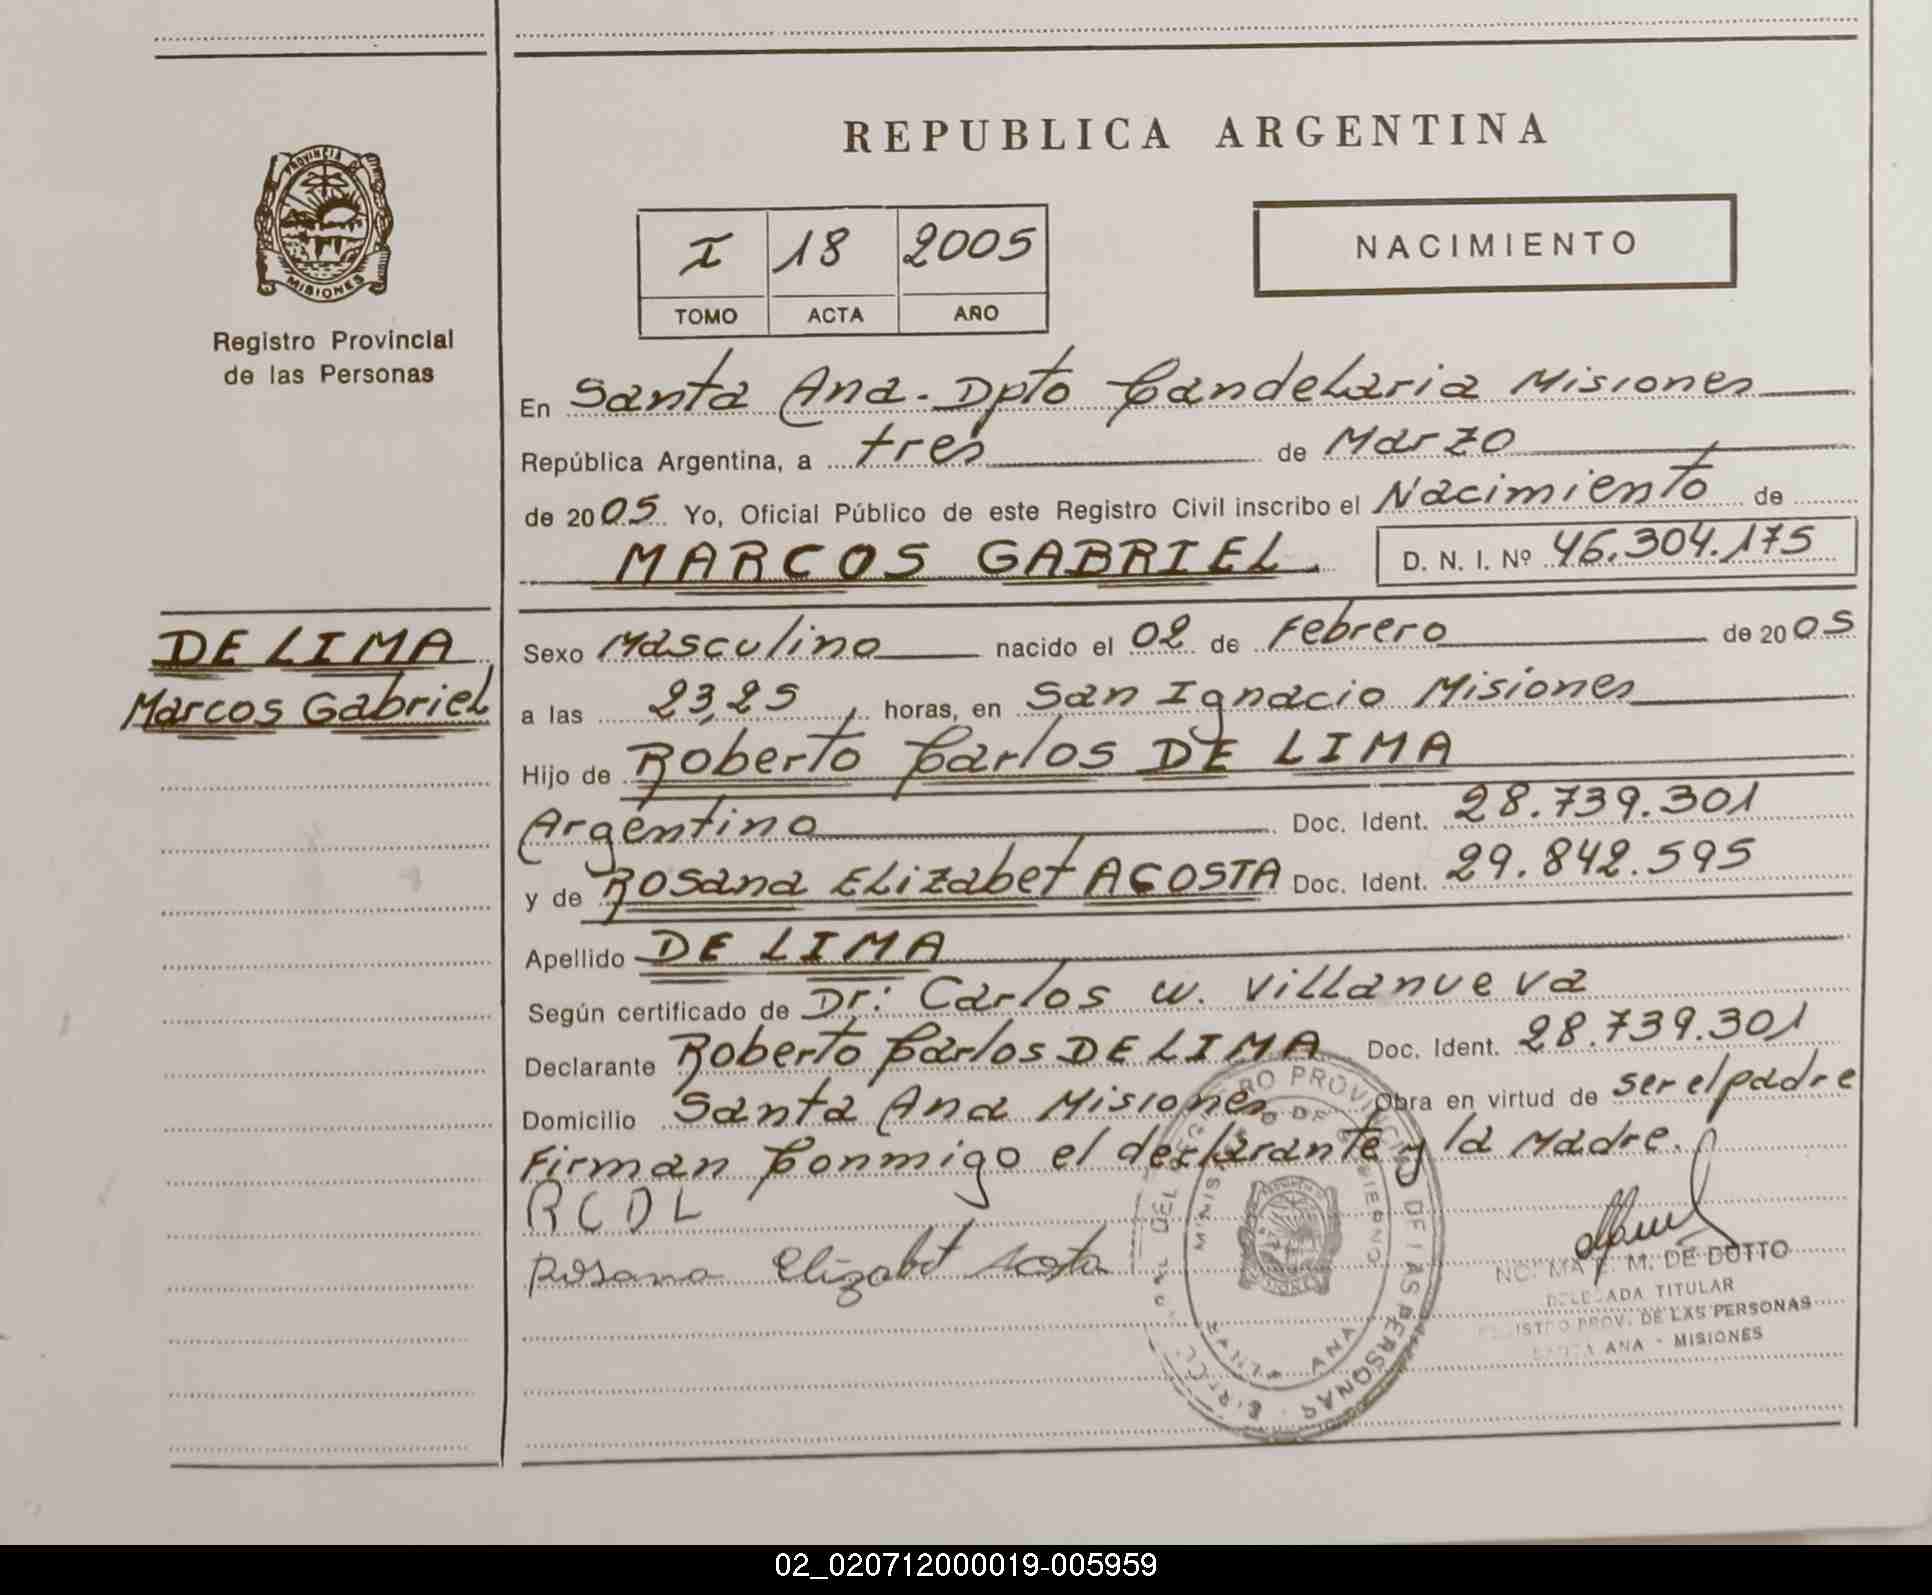 REPUBLICA ARGENTINA
PROVINCIA DE
MISIONES
Registro Provincial
de las Personas
I 18 2005
TOMO ACTA AÑO
NACIMIENTO
En Santa Ana. Dpto Candelaria Misiones
República Argentina, a tres de Marzo
de 2005 Yo, Oficial Público de este Registro Civil inscribo el Nacimiento de
MARCOS GABRIEL. D. N. I. Nº 46.304.175
DE LIMA
Marcos Gabriel
Sexo Masculino nacido el 02 de Febrero de 2005
a las 23,25 horas, en San Ignacio Misiones
Hijo de Roberto Carlos DE LIMA
Argentino Doc. Ident. 28.739.301
y de Rosana Elizabet ACOSTA Doc. Ident. 29.842.595
Apellido DE LIMA
Según certificado de Dr: Carlos W. Villanueva
Declarante Roberto Carlos DE LIMA Doc. Ident. 28.739.301
Domicilio Santa Ana Misiones Obra en virtud de ser el padre
Firman Conmigo el declarante y la Madre.
RCDL
Rosana Elizabet Acosta
DEL REGISTRO PROVINCIAL DE LAS PERSONAS
MINISTERIO DE GOBIERNO
ANA
M. DE DUTTO
DELEGADA TITULAR
REGISTRO PROV. DE LAS PERSONAS
SANTA ANA - MISIONES
02_020712000019-005959